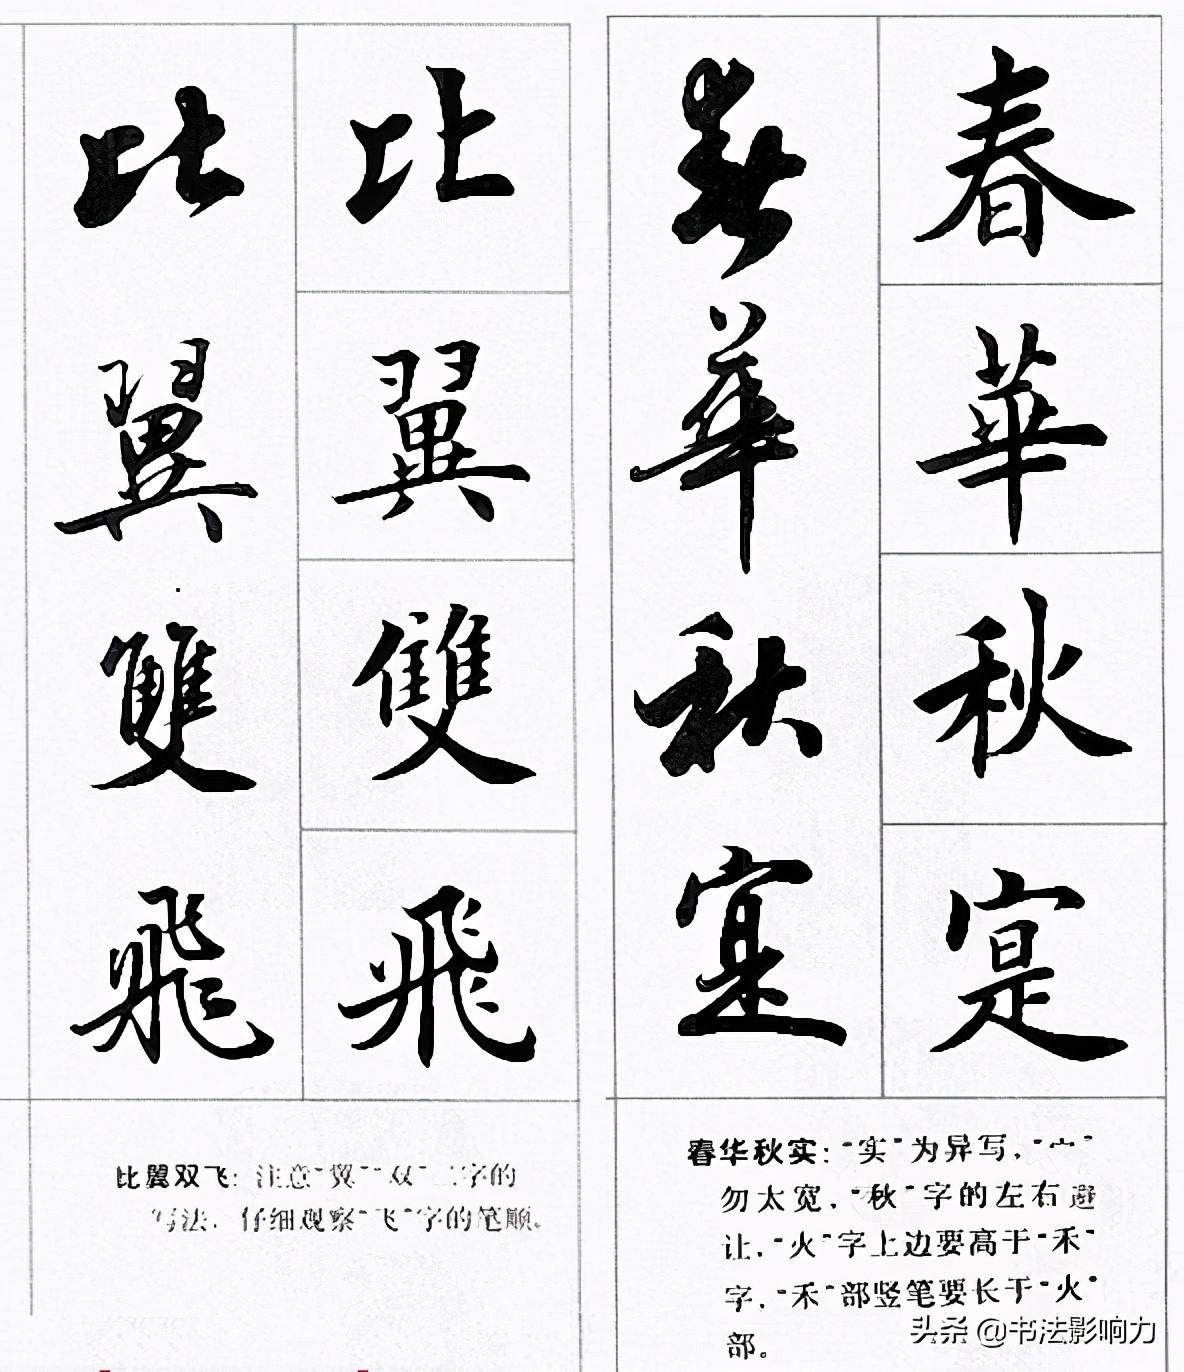 春華秋寔
春華秋寔
春华秋实：“实”为异写，“宀”
勿太宽，“秋”字的左右避
让，“火”字上边要高于“禾”
字，“禾”部竖笔要长于“火”
部。
比翼雙飛
比翼雙飛
比翼双飞：注意“翼”“双”二字的
写法，仔细观察“飞”字的笔顺。
头条 @书法影响力